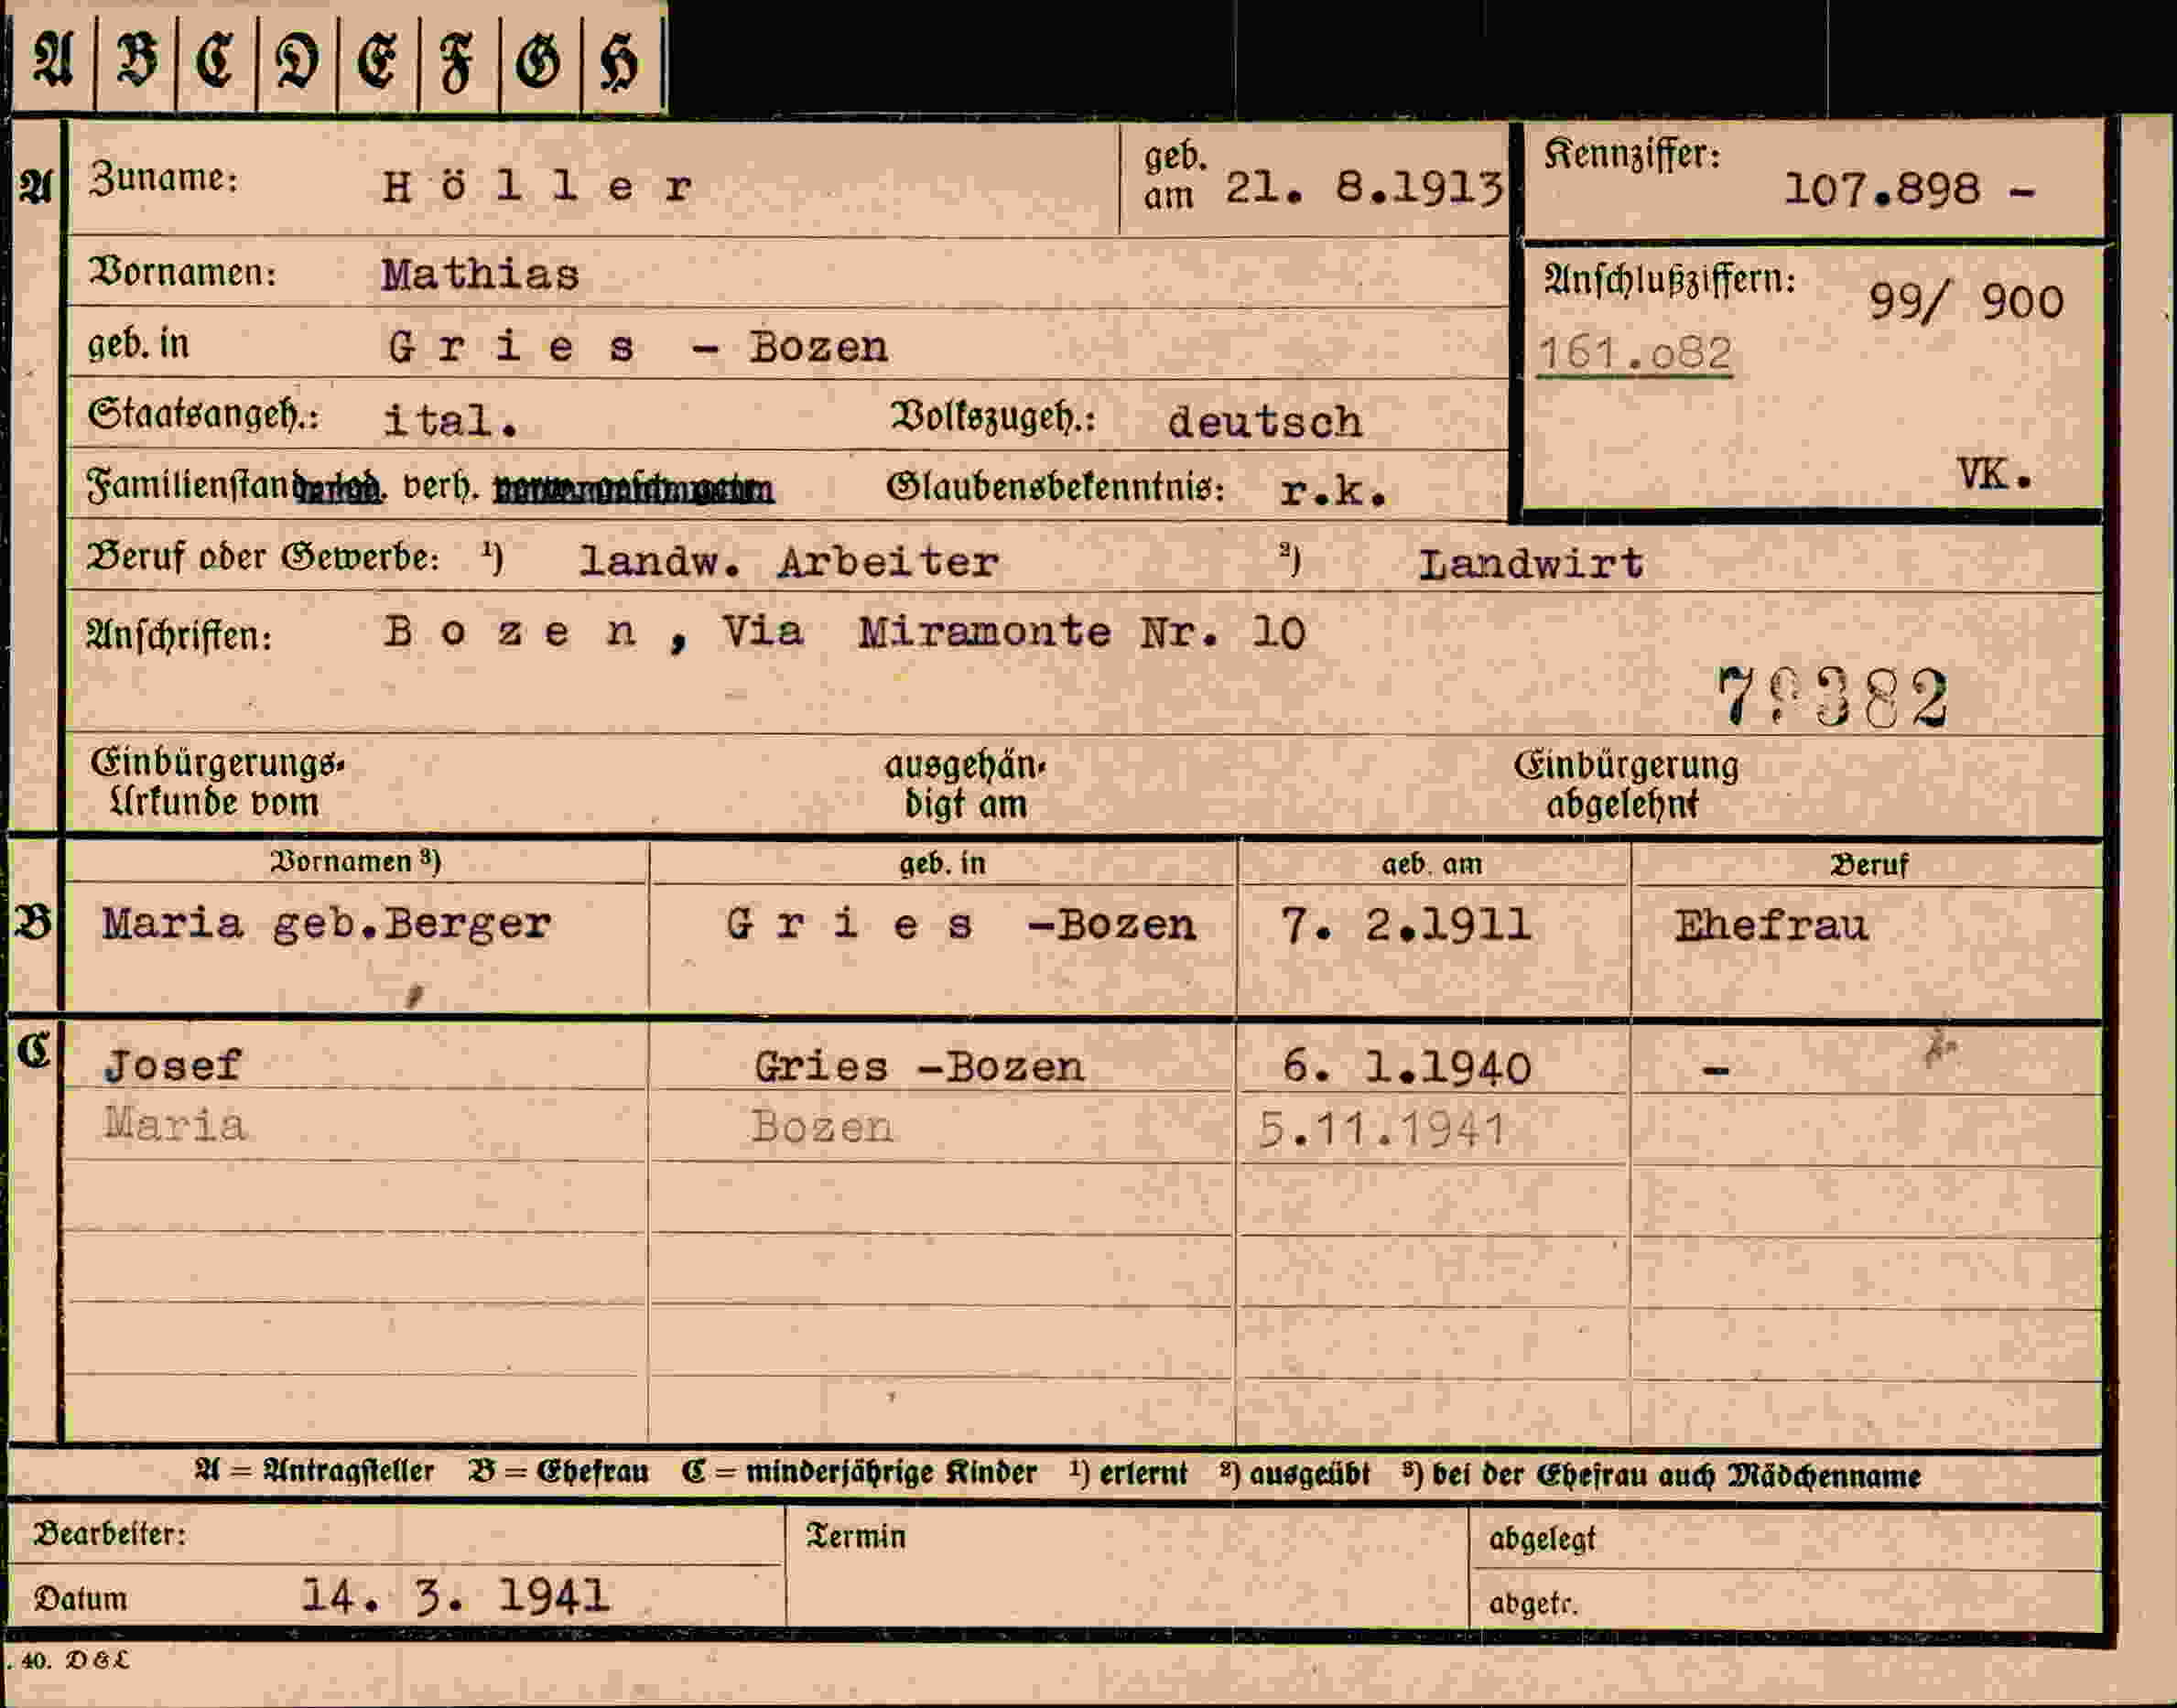 A B C D E F G H
A Zuname: Höller geb. am 21. 8.1913 Kennziffer: 107.898 -
Vornamen: Mathias Anschlußziffern: 99/ 900
geb. in Gries - Bozen 161.o82
Staatsangeh.: ital. Volkszugeh.: deutsch
Familienstand verh. Glaubensbekenntnis: r.k. VK.
Beruf oder Gewerbe: ¹) landw. Arbeiter ²) Landwirt
Anschriften: Bozen, Via Miramonte Nr. 10
Einbürgerungs- ausgehän- Einbürgerung
Urkunde vom digt am abgelehnt
Vornamen ³) geb. in geb. am Beruf
B Maria geb.Berger Gries -Bozen 7. 2.1911 Ehefrau
C Josef Gries -Bozen 6. 1.1940 -
Maria Bozen 5.11.1941
A = Antragsteller B = Ehefrau C = minderjährige Kinder ¹) erlernt ²) ausgeübt ³) bei der Ehefrau auch Mädchenname
Bearbeiter: Termin abgelegt
Datum 14. 3. 1941 abgetr.
. 40. D & L